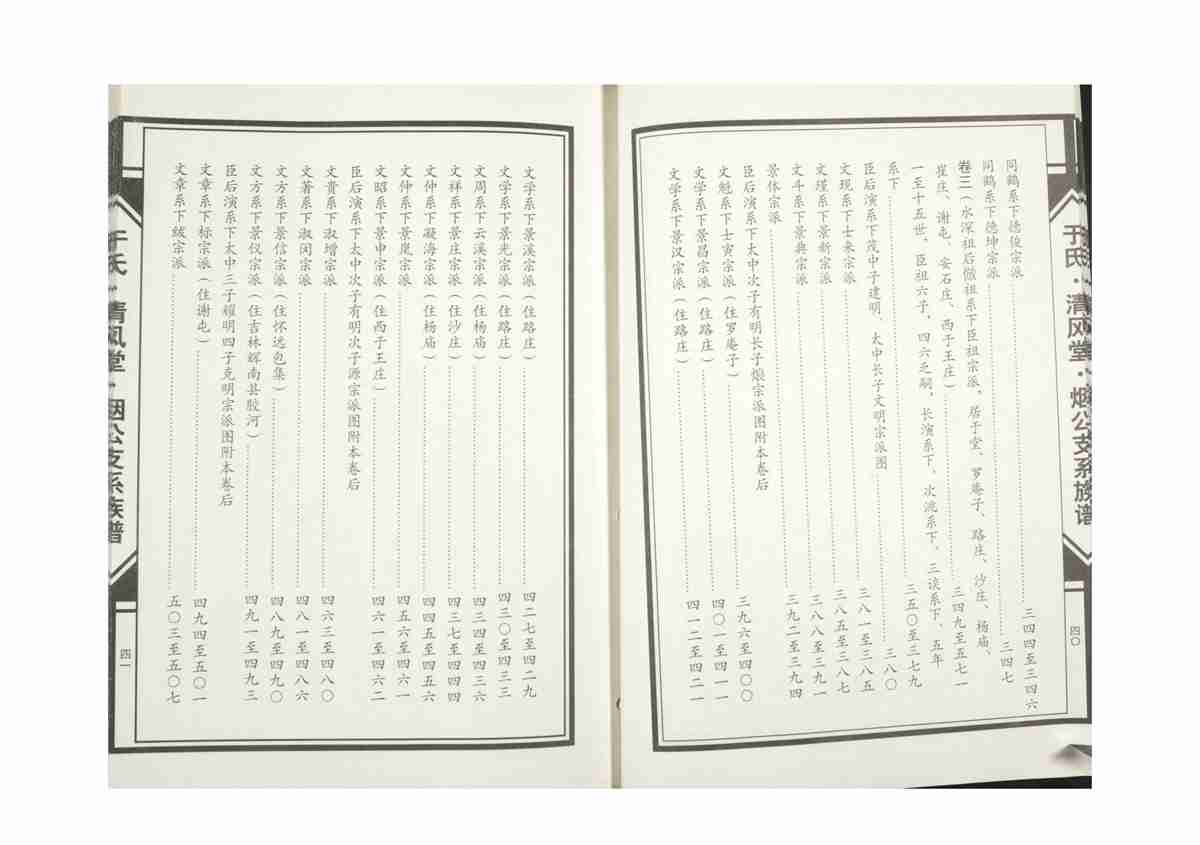 于氏·清风堂·烟公支系族谱
四〇
同鹤系下德俊宗派……三四四至三四六
同鹤系下德坤宗派……三四七
卷三（水深祖后傲祖系下臣祖宗派，居于堂、罗庵子、路庄、沙庄、杨庙、
崔庄、谢屯、安石庄、西于王庄）……三四九至五七一
一至十五世，臣祖六子，四六乏嗣，长演系下，次洮系下，三谈系下，五年
系下……三五〇至三七九
臣后演系下茂中子建明、太中长子文明宗派图……三八〇
文现系下士来宗派……三八一至三八五
文瑾系下景新宗派……三八五至三八七
文斗系下景典宗派……三八八至三九一
景体宗派……三九二至三九四
臣后演系下太中次子有明长子烺宗派图附本卷后
文魁系下士寅宗派（住罗庵子）……三九六至四〇〇
文学系下景昌宗派（住路庄）……四〇一至四一一
文学系下景汉宗派（住路庄）……四一二至四二一
文学系下景溪宗派（住路庄）……四二七至四二九
文学系下景光宗派（住路庄）……四三〇至四三三
文周系下云溪宗派（住杨庙）……四三四至四三六
文祥系下景庄宗派（住沙庄）……四三七至四四四
文仲系下凝海宗派（住杨庙）……四四五至四五六
文仲系下景岚宗派……四五六至四六一
文昭系下景中宗派（住西于王庄）……四六一至四六二
臣后演系下太中次子有明次子源宗派图附本卷后
文贵系下淑增宗派……四六三至四八〇
文著系下淑闵宗派……四八一至四八六
文方系下景信宗派（住怀远包集）……四八九至四九〇
文方系下景仪宗派（住吉林辉南县胶河）……四九一至四九三
臣后演系下太中三子耀明四子克明宗派图附本卷后
文章系下标宗派（住谢屯）……四九四至五〇一
文章系下绂宗派……五〇三至五〇七
于氏·清风堂·烟公支系族谱
四一